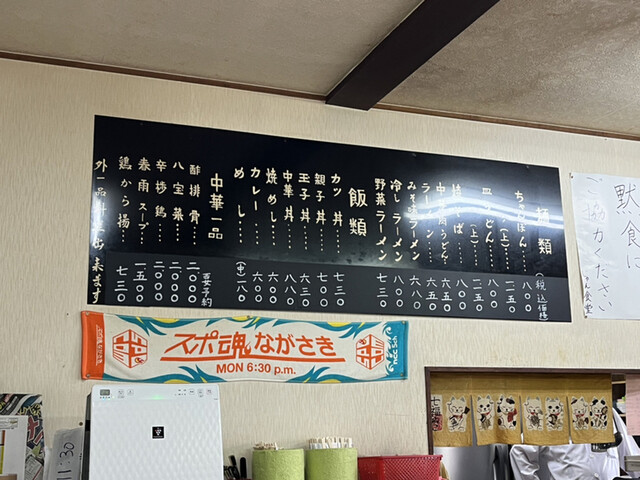 麺類
(税込価格)
ちゃんぽん…八〇〇
〃(上)…一一五〇
皿うどん…八〇〇
〃(上)…一一五〇
焼そば…八〇〇
中華肉うどん…六五〇
ラーメン…六五〇
みそラーメン…八〇〇
冷しラーメン…八〇〇
野菜ラーメン…七三〇
飯類
カツ丼…七三〇
親子丼…七〇〇
玉子丼…六三〇
中華丼…八八〇
焼めし…六〇〇
カレー…六〇〇
めし…(中)二八〇
中華一品
要予約
酢排骨…二〇〇〇
八宝菜…二〇〇〇
辛椒鶏…二〇〇〇
春雨スープ…一五〇〇
鶏から揚…七三〇
外一品料理出来ます
黙食に
ご協力ください
ん食堂
スポ魂ながさき
MON 6:30 p.m.
ncc 5ch
11:30